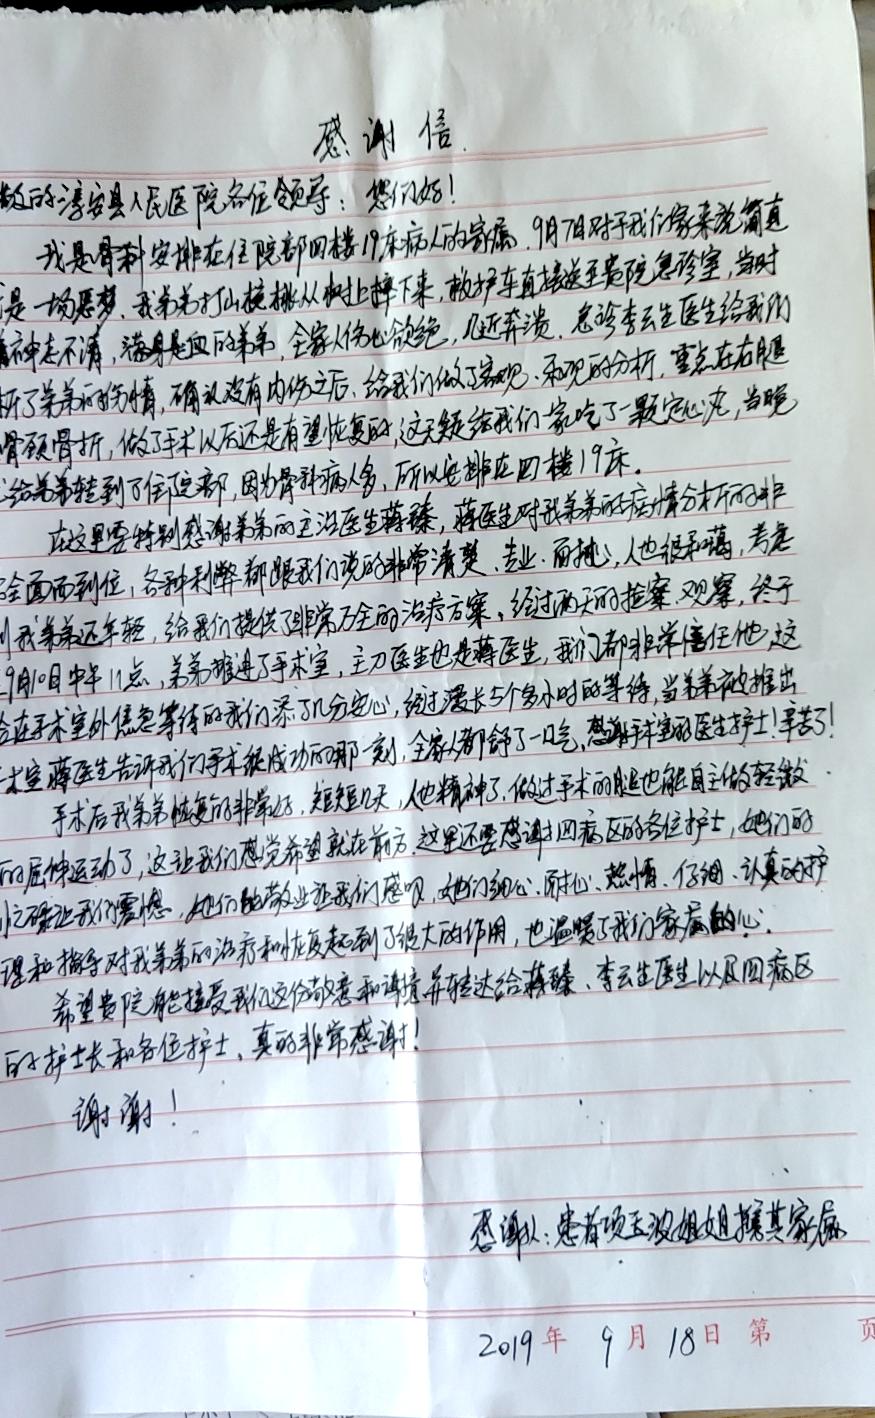 感谢信.
敬的淳安县人民医院各位领导：您们好！
我是骨科安排在住院部四楼19床病人的家属.9月7日对于我们家来说简直
是一场恶梦.我弟弟打山核桃从树上摔下来,救护车直接送至贵院急诊室,当时
神志不清,满身是血的弟弟,全家人伤心欲绝,几近奔溃.急诊李云生医生给我们
析了弟弟的伤情,确认没有内伤之后、给我们做了客观、乐观的分析,重点在右腿
骨颈骨折,做了手术以后还是有望恢复的,这无疑给我们一家吃了一颗定心丸,当晚
给弟弟转到了住院部,因为骨科病人多、所以安排在四楼19床。
在这里要特别感谢弟弟的主治医生蒋臻,蒋医生对我弟弟的病情分析的非
全面而到位,各种利弊都跟我们说的非常清楚、专业、而耐心,人也很和蔼,考虑
到我弟弟还年轻,给我们提供了非常万全的治疗方案、经过两天的检察.观察,终于
9月10日中午11点,弟弟推进了手术室,主刀医生也是蒋医生,我们都非常信任他,这
给在手术室外焦急等待的我们添了几分安心,经过漫长5个多小时的等待,当弟弟被推出
术室蒋医生告诉我们手术很成功的那一刻,全家人都舒了一口气,感谢手术室的医生护士!辛苦了!
手术后我弟弟恢复的非常好,短短几天,人也精神了.做过手术的腿也能自主做轻微
的屈伸运动了,这让我们感觉希望就在前方.这里还要感谢四病区的各位护士,她们的
忙碌让我们震憾,她们的敬业让我们感叹,她们细心、耐心、热情、仔细、认真的护
理和指导对我弟弟的治疗和恢复起到了很大的作用,也温暖了我们家属的心.
希望贵院能接受我们这份敬意和谢意,并转达给蒋臻、李云生医生以及四病区
的护士长和各位护士、真的非常感谢!
谢谢!
感谢人:患者项玉波姐姐携其家属
2019年 9月18日 第 页